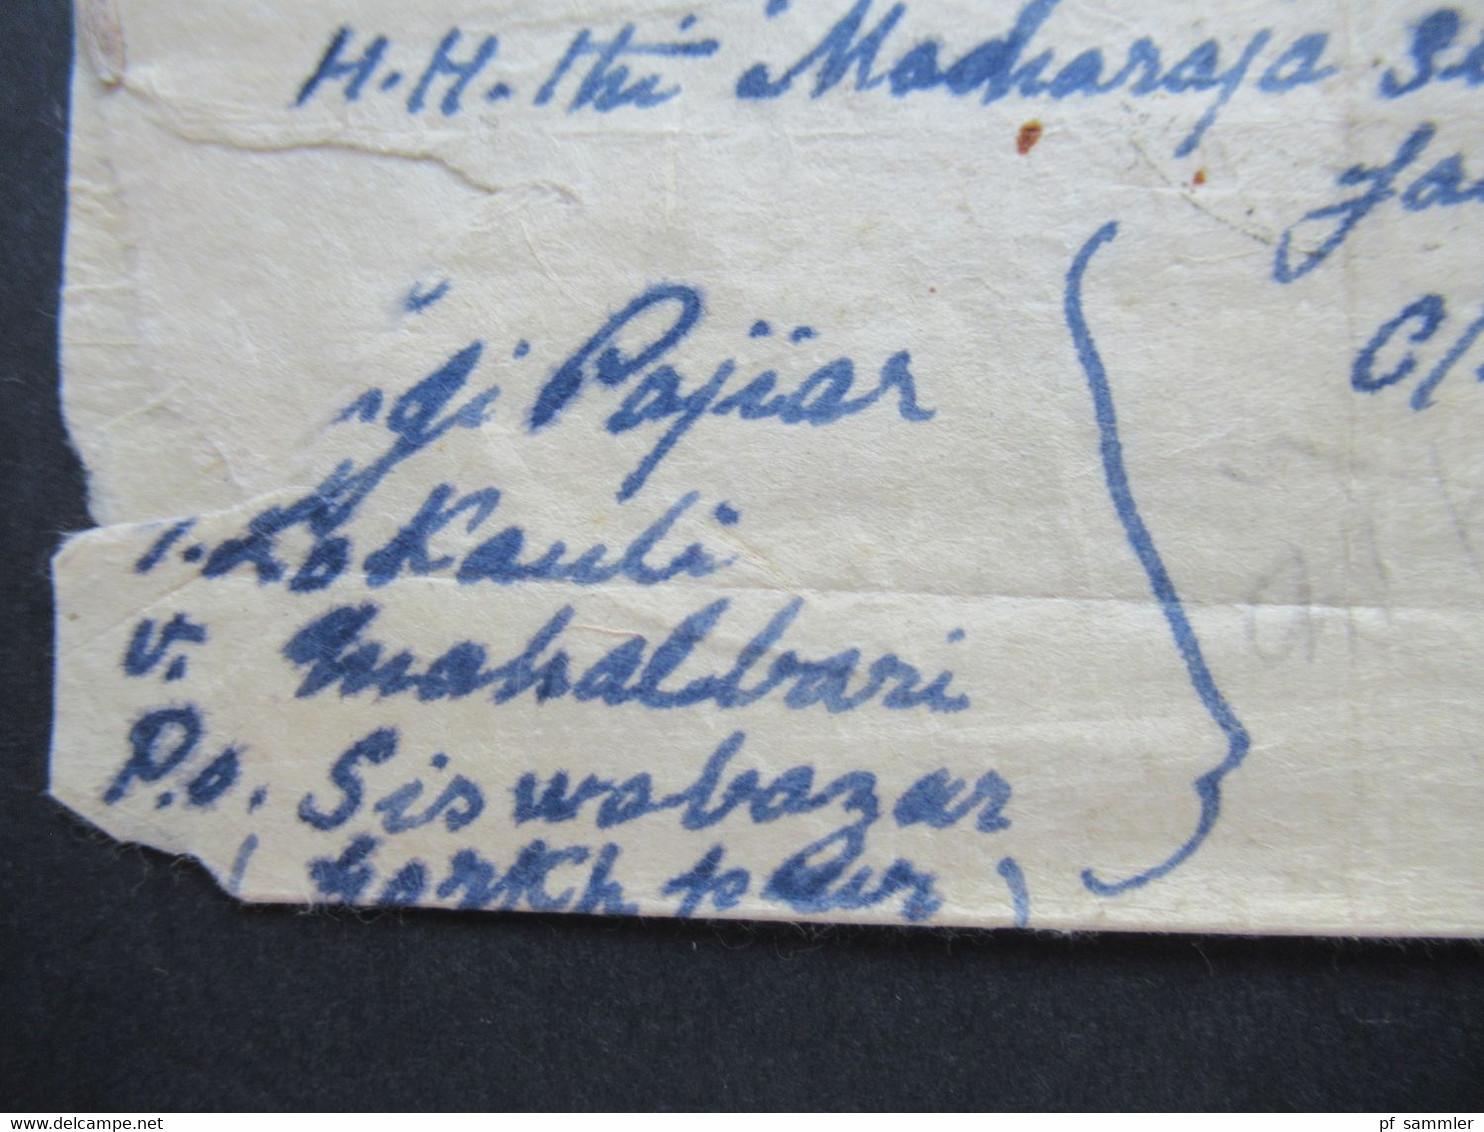 H.H. thi Madharaja
C/
ji Pajiar
Lokauli
v. Mahalbari
P.o. Siswabazar
( Gorkhpur )
www.delcampe.net
pf_sammler